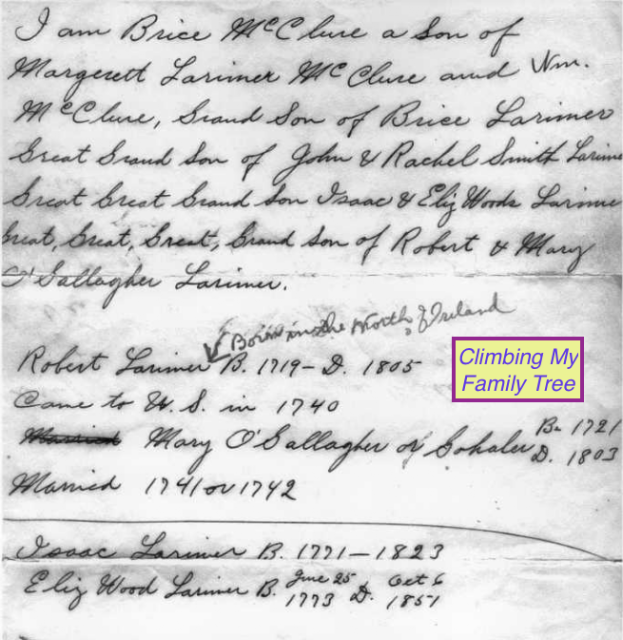 I am Brice McClure a Son of
Margerett Larimer McClure and Wm.
McClure, Grand Son of Brice Larimer
Great Grand Son of John & Rachel Smith Larime
Great Great Grand Son Isaac & Eliz Woods Larime
Great, Great, Great, Grand Son of Robert & Mary
O'Gallagher Larimer.
Born in the North of Ireland
Robert Larimer B. 1719 - D. 1805
Climbing My
Family Tree
Came to U.S. in 1740
Married Mary O'Gallagher or Gohaler B. 1721
D. 1803
Married 1741 or 1742
Isaac Larimer B. 1771 - 1823
Eliz Wood Larimer B. June 25 1773 D. Oct 6 1851